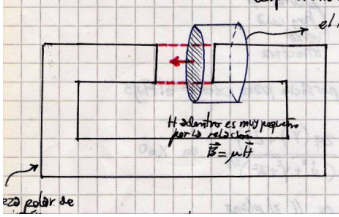 el
H adentro es muy pequeño
por la relación
B = μH
eza polar de